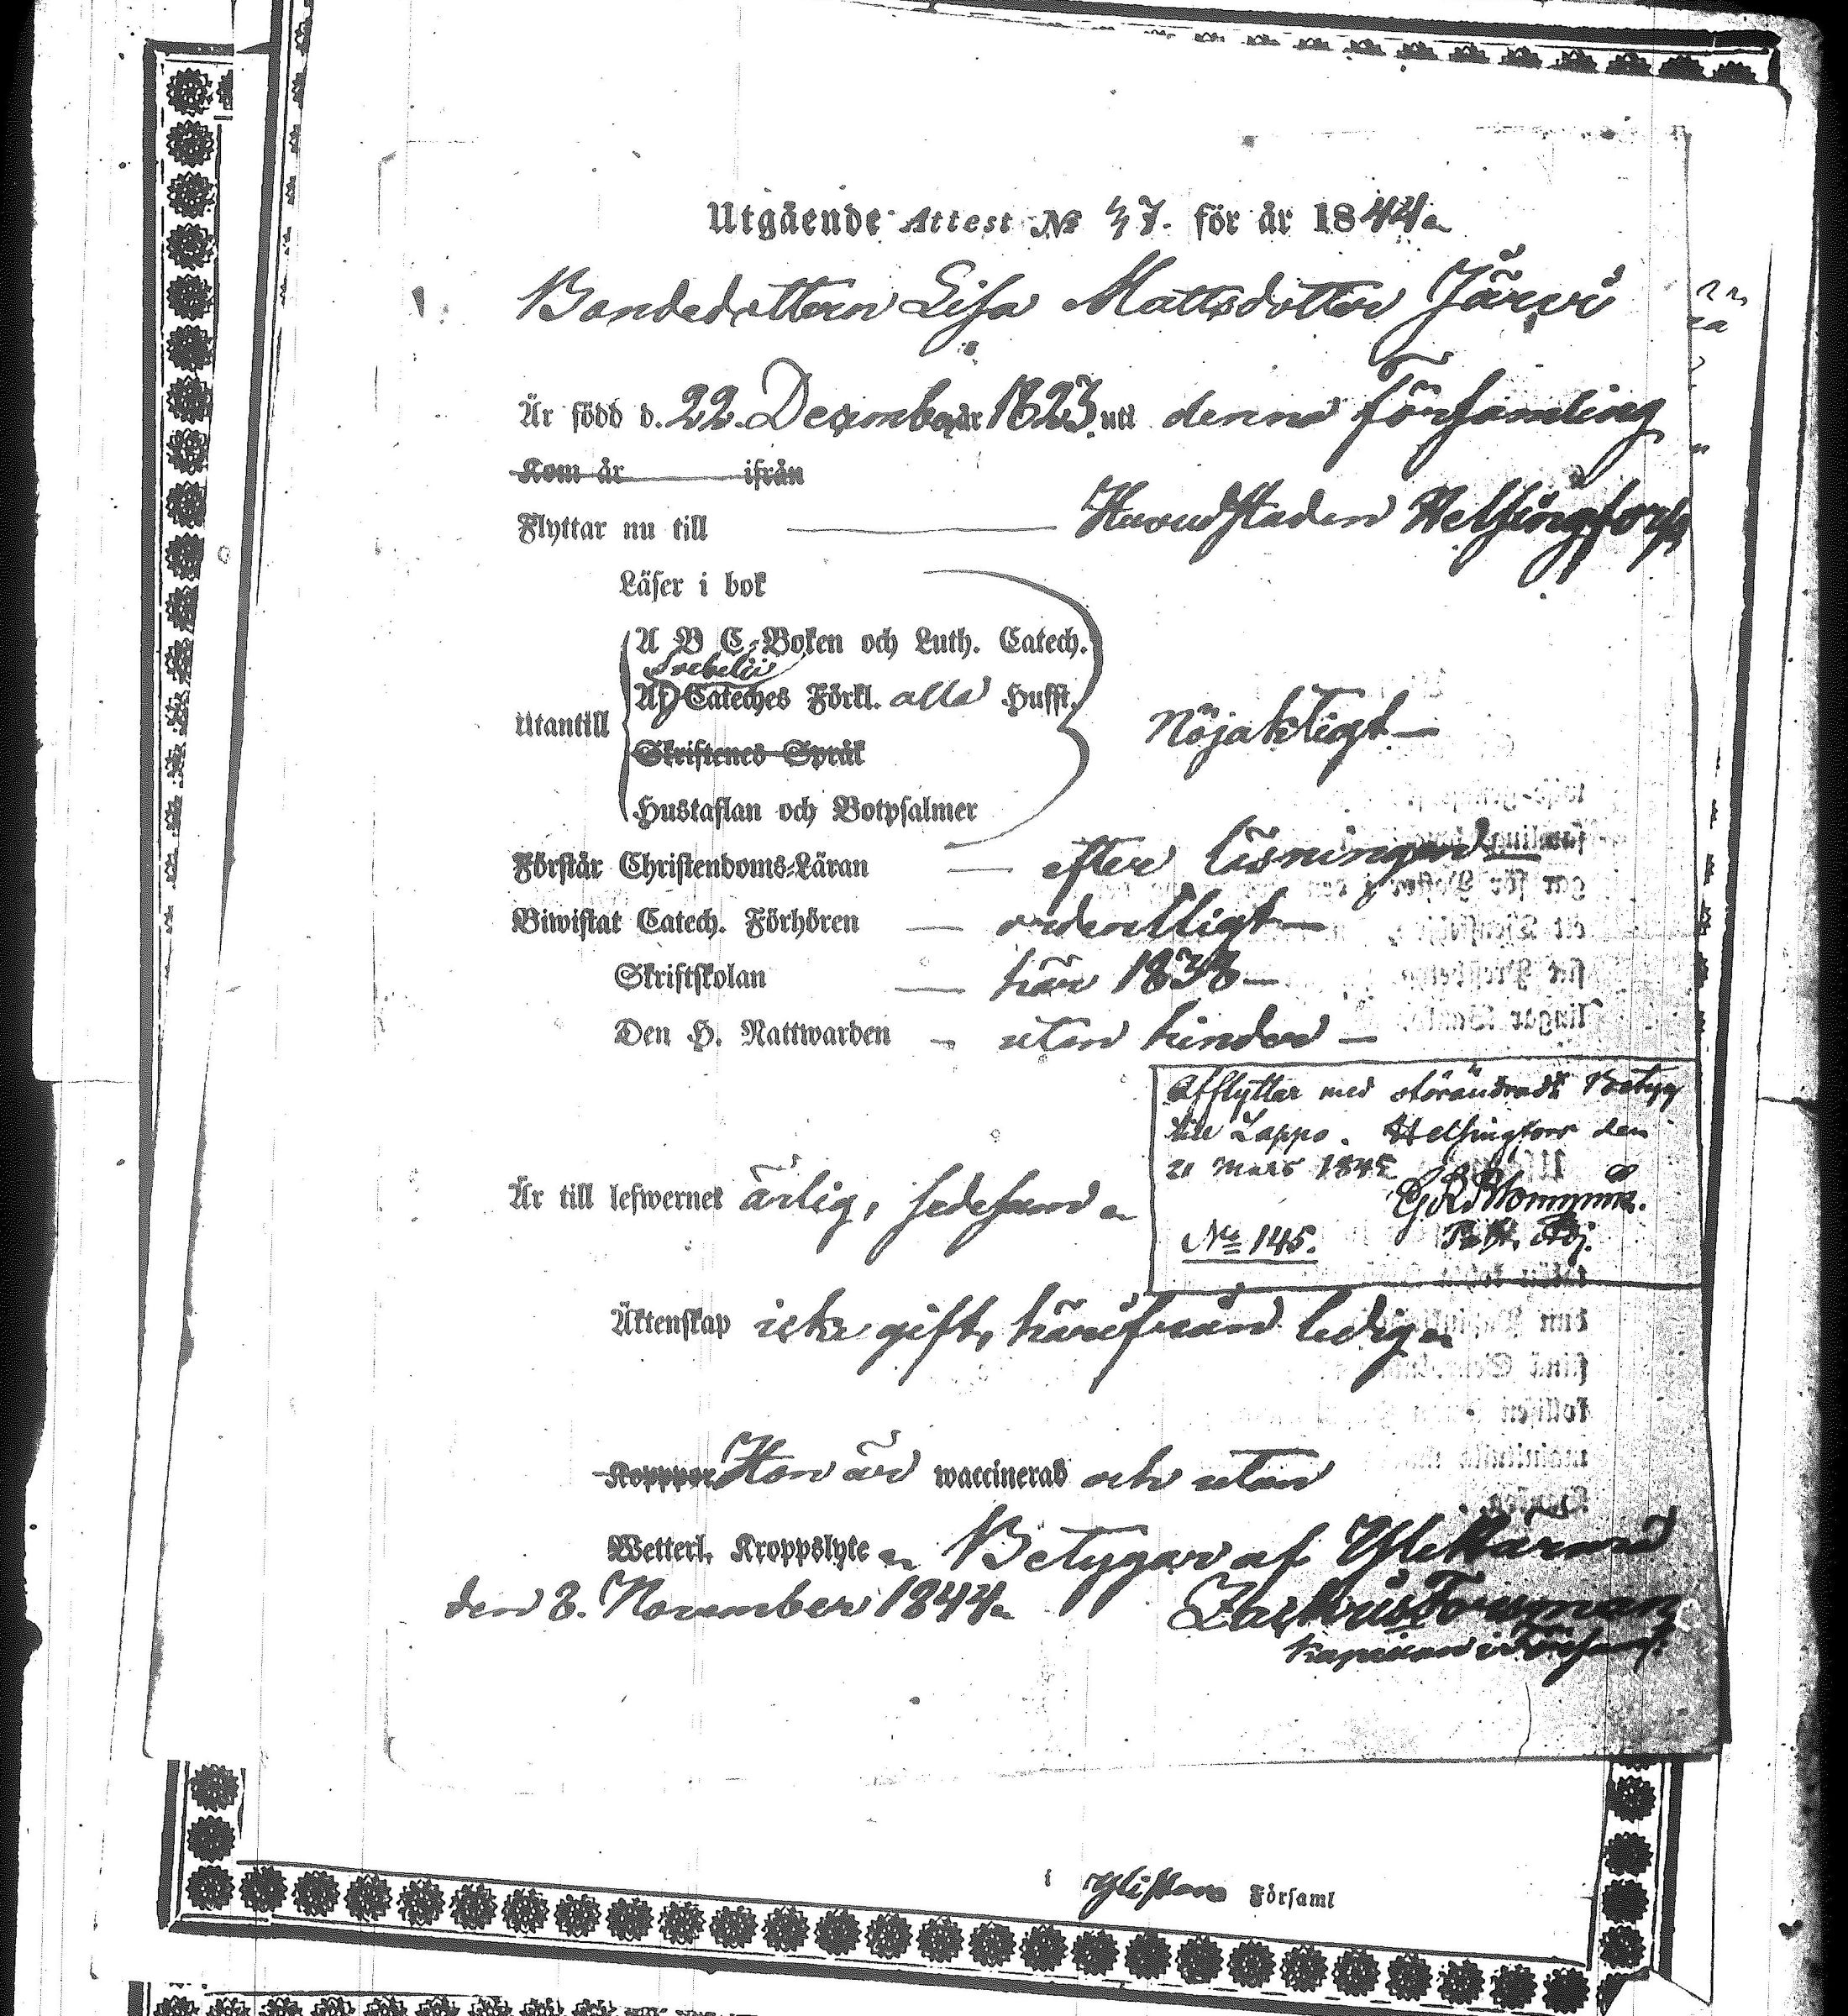 Utgående Attest № 37. för år 1844
Bondedottern Lisa Mattsdotter Järvi
Är född d. 22. December år 1823 uti denna Församling
Kom år ifrån
Flyttar nu till Huvudstaden Helsingfors
Läser i bok
A B C-Boken och Luth. Catech.
Svebelii
Af Cateches Förkl. alla Hufst.
Utantill
Nöjaktigt
Skriftenes Språk
Hustaflan och Botpsalmer
Förstår Christendoms-Läran efter läsningen
Biwistat Catech. Förhören ordentligt
Skriftskolan här 1838
Den H. Nattwarden utan hinder
Afflyttar med oförändradt Betyg
till Lappo. Helsingfors den
21 Mars 1845
№ 145.
Är till lefwernet ärlig, sedesam
Äktenskap icke gift, härifrån ledig
Kopppor Hon är waccinerad och utan
Wetterl. Kroppslyte Betygar af Ylikärma
den 8. November 1844 Zachris Forsman
Kapellan i Församl.
i Församl